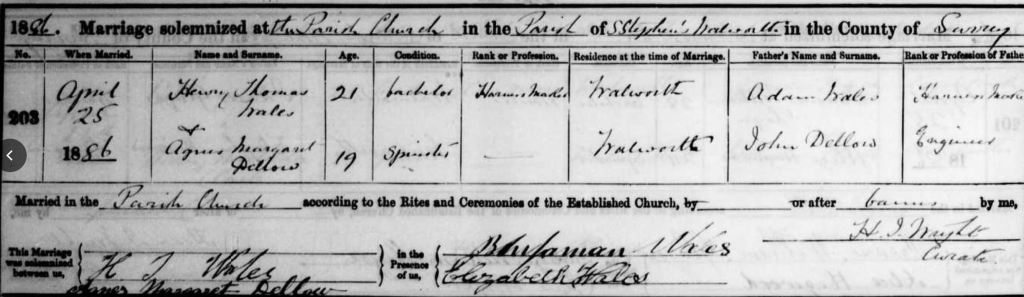 1886. Marriage solemnized at the Parish Church in the Parish of S Stephen's Walworth in the County of Surrey
No. When Married. Name and Surname. Age. Condition. Rank or Profession. Residence at the time of Marriage. Father's Name and Surname. Rank or Profession of Father
203 April 25 1886
Henry Thomas Wales 21 bachelor Harness Maker Walworth Adam Wales Harness Make
Agnes Margaret Dellow 19 Spinster — Walworth John Dellow Engineer
Married in the Parish Church according to the Rites and Ceremonies of the Established Church, by or after banns by me,
H. J. Wright
Curate
This Marriage was solemnized between us,
H T Wales
Agnes Margaret Dellow
In the Presence of us,
Benjaman Wales
Elizabeth Wales